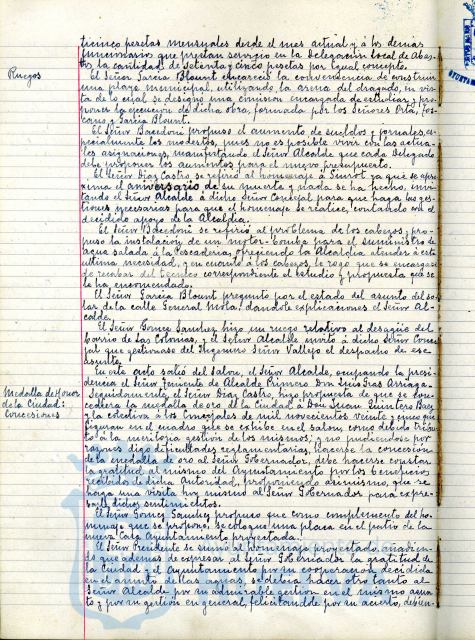 ticinco pesetas mensuales desde el mes actual y a los demás
funcionarios que prestan servicio en la Delegación Local de Abas-
tos, la cantidad de setenta y cinco pesetas por igual concepto.
Ruegos
El Señor García Blount encareció la conveniencia de construir
una plaza municipal, utilizando la arena del dragado, en vis-
ta de lo cual se designó una comisión encargada de estudiar y pro-
poner la ejecución de dicha obra, formada por los Señores Orta,
y García Blount.
El Señor Bacedoni propuso el aumento de sueldos y jornales, es-
pecialmente los modestos, pues no es posible vivir con las actua-
les asignaciones, manifestando el Señor Alcalde que cada Delegado
debe proponer los aumentos para el nuevo presupuesto.
El Señor Díaz Castro se refirió al homenaje a ya que se apro-
xima el aniversario de su muerte y nada se ha hecho, invi-
tando el Señor Alcalde a dicho Señor Concejal para que haga las ges-
tiones necesarias para que el homenaje se realice, contando con el
decidido apoyo de la Alcaldía.
El Señor Bacedoni se refirió al problema de los cabezos, pro-
puso la instalación de un motor-bomba para el suministro de
agua salada a la Pescadería, ofreciendo la Alcaldía atender a esta
última necesidad, y en cuanto a los cabezos, le rogó que se encargase
de recabar del técnico correspondiente el estudio y propuesta que se
le ha encomendado.
El Señor García Blount preguntó por el estado del asunto del so-
lar de la calle General Mola, dándole explicaciones el Señor Al-
calde.
El Señor Gómez Sánchez hizo un ruego relativo al desagüe del
barrio de Las Colonias, y el Señor Alcalde invitó a dicho Señor Conce-
jal que gestionase del Ingeniero Señor Vallejo el despacho de ese
asunto.
En este acto salió del salón, el Señor Alcalde, ocupando la presi-
dencia el Señor Teniente de Alcalde Primero Don Luis Arriaga.
Medalla de Honor
de la Ciudad:
Concesiones
Seguidamente, el Señor Díaz Castro, hizo propuesta de que se con-
cediera la medalla de oro de la Ciudad a Don Quintero Báez
y la colectiva a los Concejales de mil novecientos veinte y nueve que
figuran en el cuadro que se exhibe en el salón, como debido tribu-
to a la meritoria gestión de los mismos; y no pudiéndose por
razones digo dificultades reglamentarias, hacerse la concesión
de la medalla de oro al Señor Gobernador, debe hacerse constar
la gratitud al mismo del Ayuntamiento por los beneficios
recibidos de dicha Autoridad, proponiendo asimismo, que se
haga una visita hoy mismo al Señor Gobernador para expre-
sarle dichos sentimientos.
El Señor Gómez Sánchez propuso que como complemento del ho-
menaje que se propone, se coloque una placa en el patio de la
nueva Casa Ayuntamiento proyectada.
El Señor Presidente se sumó al homenaje proyectado, añadien-
do que además de expresar al Señor Gobernador la gratitud de
la Ciudad y el Ayuntamiento por su cooperación decidida
en el asunto de las aguas, se debía hacer otro tanto al
Señor Alcalde por su admirable gestión en el mismo asun-
to y por su gestión en general, felicitándole por su acierto,